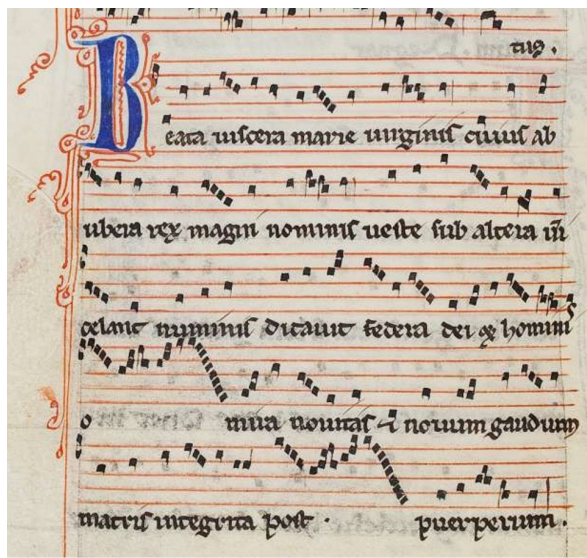 tus.
Beata viscera marie virginis cuius ab
ubera rex magni nominis veste sub altera vim
celavit numinis dictavit federa dei et hominis
o mira novitas et novum gaudium
matris integrita post puerperium.